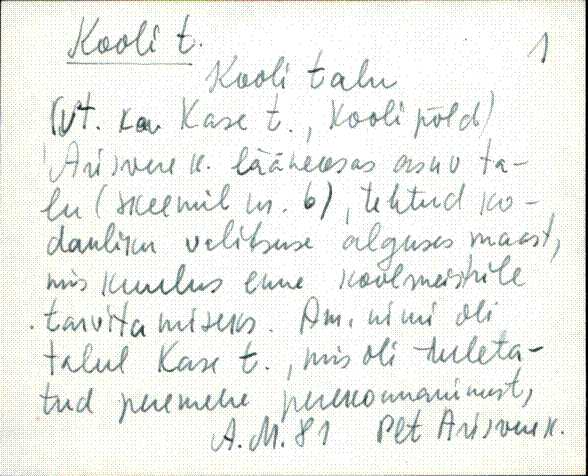 Kooli t.
1
Kooli talu
(vt. ka Kase t., Koolipõld)
Arisvere k. lääneosas asuv ta-
lu (skeemil nr. 6), tehtud ko-
danliku valitsuse alguses maast,
mis kuulus enne koolmeistrile
tarvitamiseks. Am. nimi oli
talul Kase t., mis oli tuleta-
tud peremehe perekonnanimest,
A.M. 81 Plt Arisvere k.